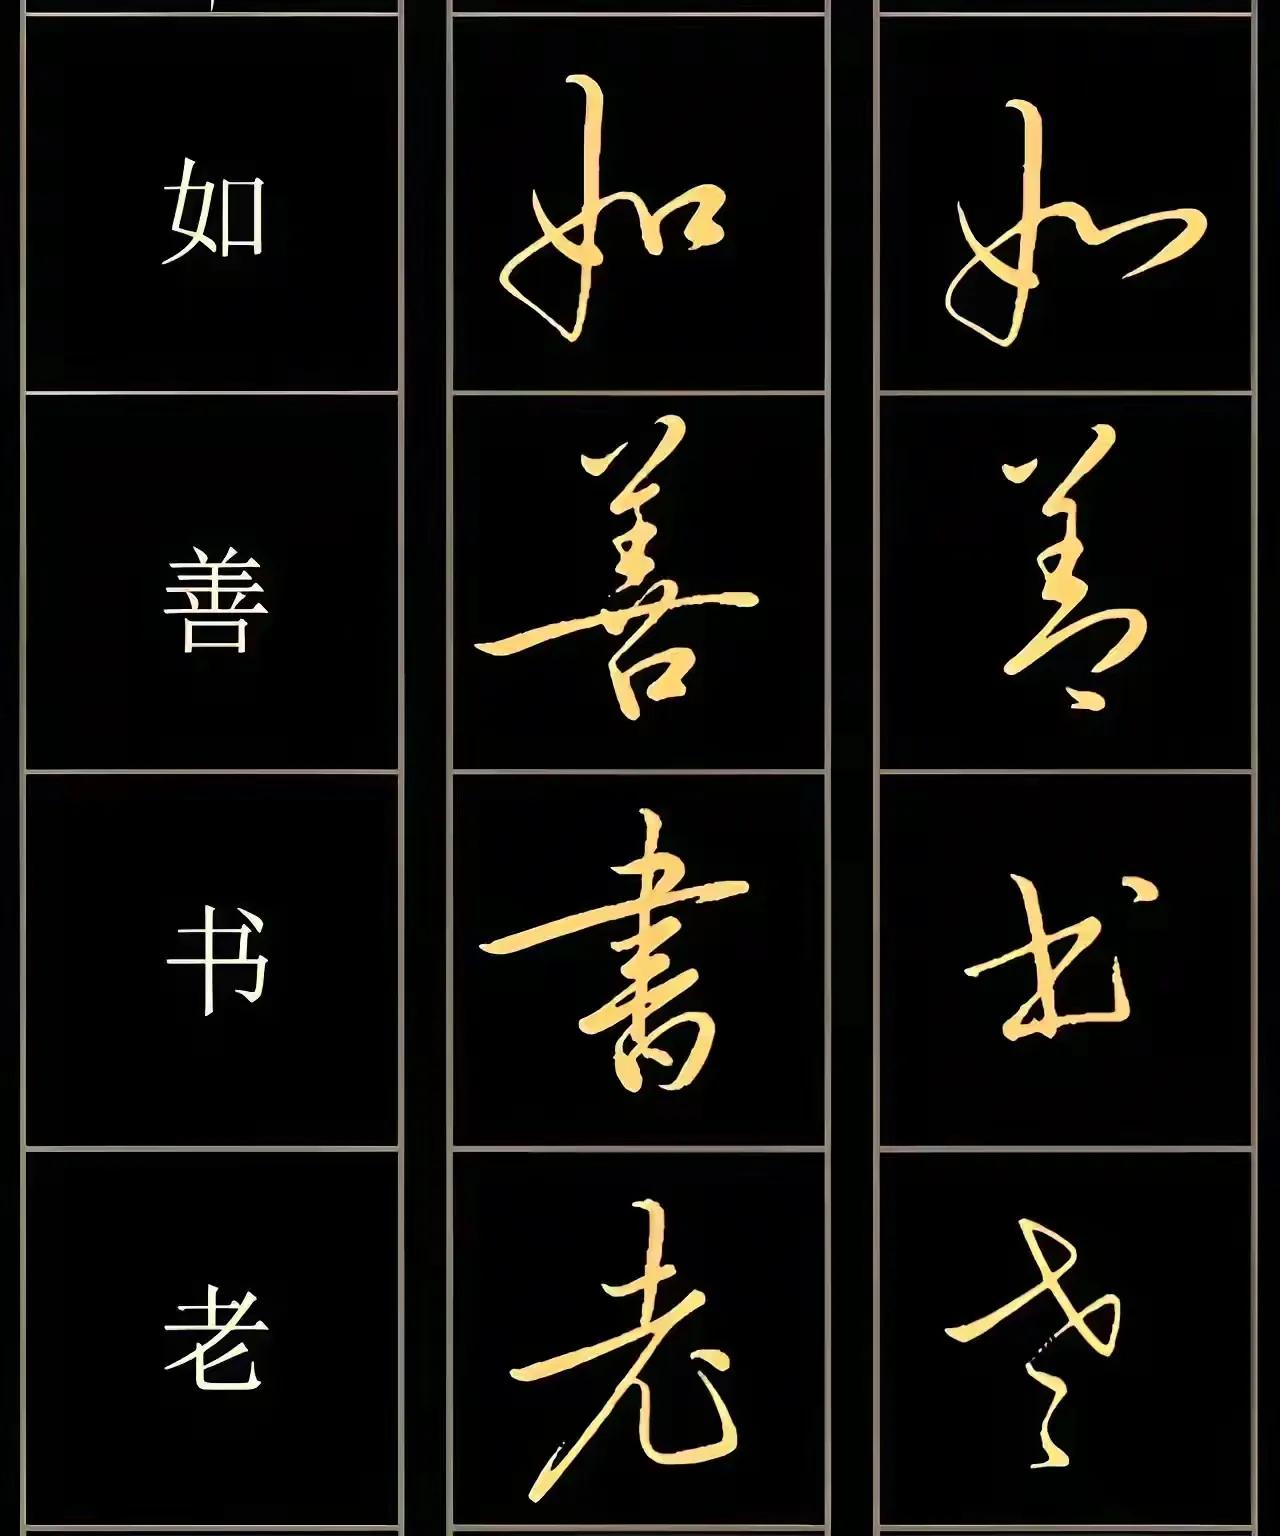 如 如 如
善 善 善
书 書 书
老 老 老